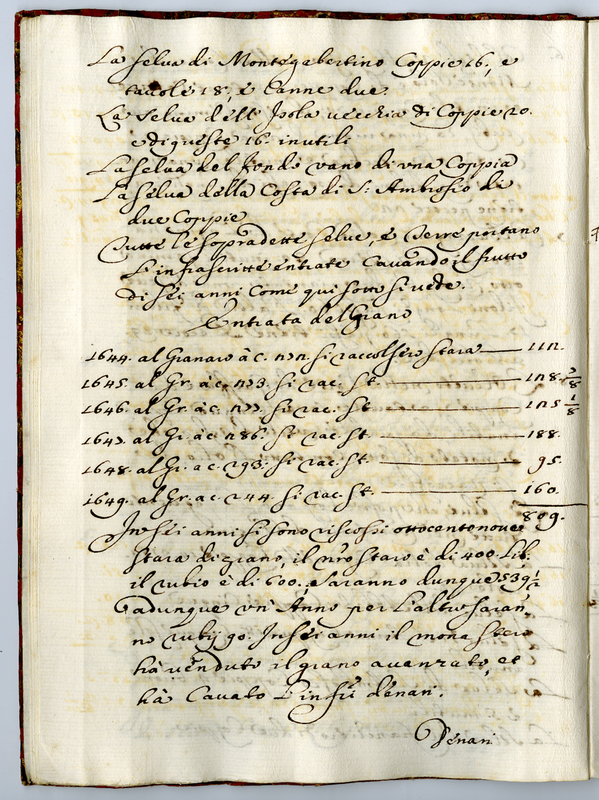 La selva di Montegabertino Coppie 16, e
tavole 18, e Canne due.
La selva dell Isola vecchia di Coppie 20.
e di queste 16. inutili
La selva del fondo vano di una Coppia
La selva della Costa di S. Ambrosio di
due Coppie
Tutte le sopradette selve, e Terre portano
l'infrascritte entrate Cavando il frutto
di sei anni Come qui sotto si vede.
Entrata del Grano
1644. al Granaro à c. si raccolsero stara 112.
1645 al Gr. à c. si rac. st. 128. 3/8
1646. al Gr. à c. si rac. st. 125 1/8
1647. al Gr. à c. 286. si rac. st. 188.
1648. al Gr. a c. 293. si rac. st. 95.
1649. al Gr. a c. 244. si rac. st. 160.
809.
In sei anni si sono riscossi ottocentonove
stara di grano, il nro staro è di 400. Lib.
il rubio è di 600., e saranno dunque 539 1/2
adunque un Anno per l'altro saran
no rubij 90. In sei anni il monastero
hà venduto il grano avanzato, et
hà Cavato l'infri denari.
Denari